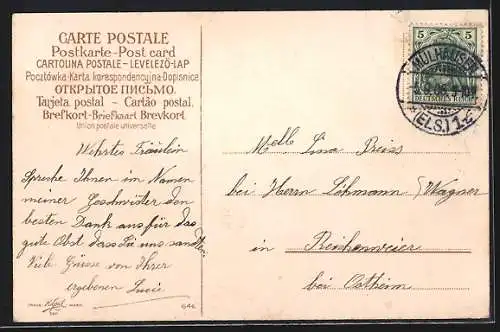 CARTE POSTALE
Postkarte-Post card
CARTOLINA POSTALE-LEVELEZÖ-LAP
Pocztówka-Karta korespondencyjna-Dopisnice
ОТКРЫТОЕ ПИСЬМО.
Tarjeta postal - Cartão postal.
Brefkort-Briefkaart Brevkort.
Union postale universelle
Wehrtes Fräulein
Spreche Ihnen im Namen
meiner Geschwister den
besten Dank aus für das
gute Obst dass Sie uns sandten
Viele Grüsse von Ihrer
ergebenen Lucie
5 5
DEUTSCHES REICH
MÜLHAUSEN
(ELS.) 1
Melle Lina Preiss
bei Herrn Löhmann / Wagner
in Reichenweier
bei Ostheim